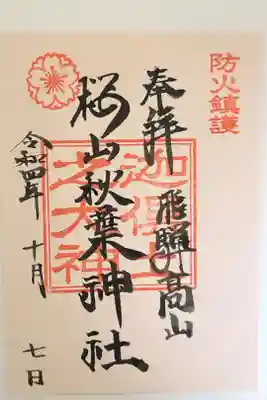 防火鎮護
奉拝 飛騨高山
桜山秋葉神社
令和四年 十月 七日
迦倶土
之大神